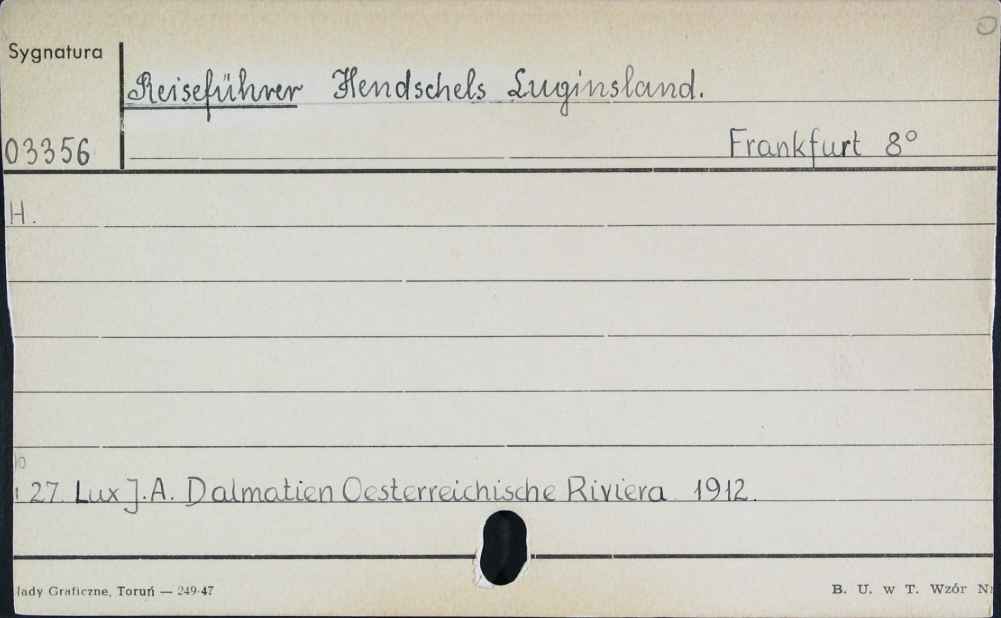 Sygnatura
Reiseführer Hendschels Luginsland.
03356
Frankfurt 8°
H.
27. Lux J.A. Dalmatien Oesterreichische Riviera 1912.
łady Graficzne, Toruń — 249-47
B. U. w T. Wzór N